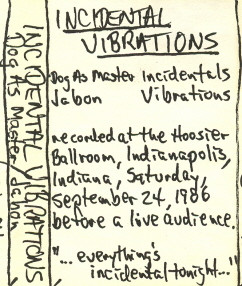 INCIDENTAL VIBRATIONS
Dog As Master/Jabon
INCIDENTAL
VIBRATIONS
Dog As Master Incidentals
Jabon Vibrations
recorded at the Hoosier
Ballroom, Indianapolis,
Indiana, Saturday,
September 24, 1986
before a live audience.
"... everything's
incidental tonight..."